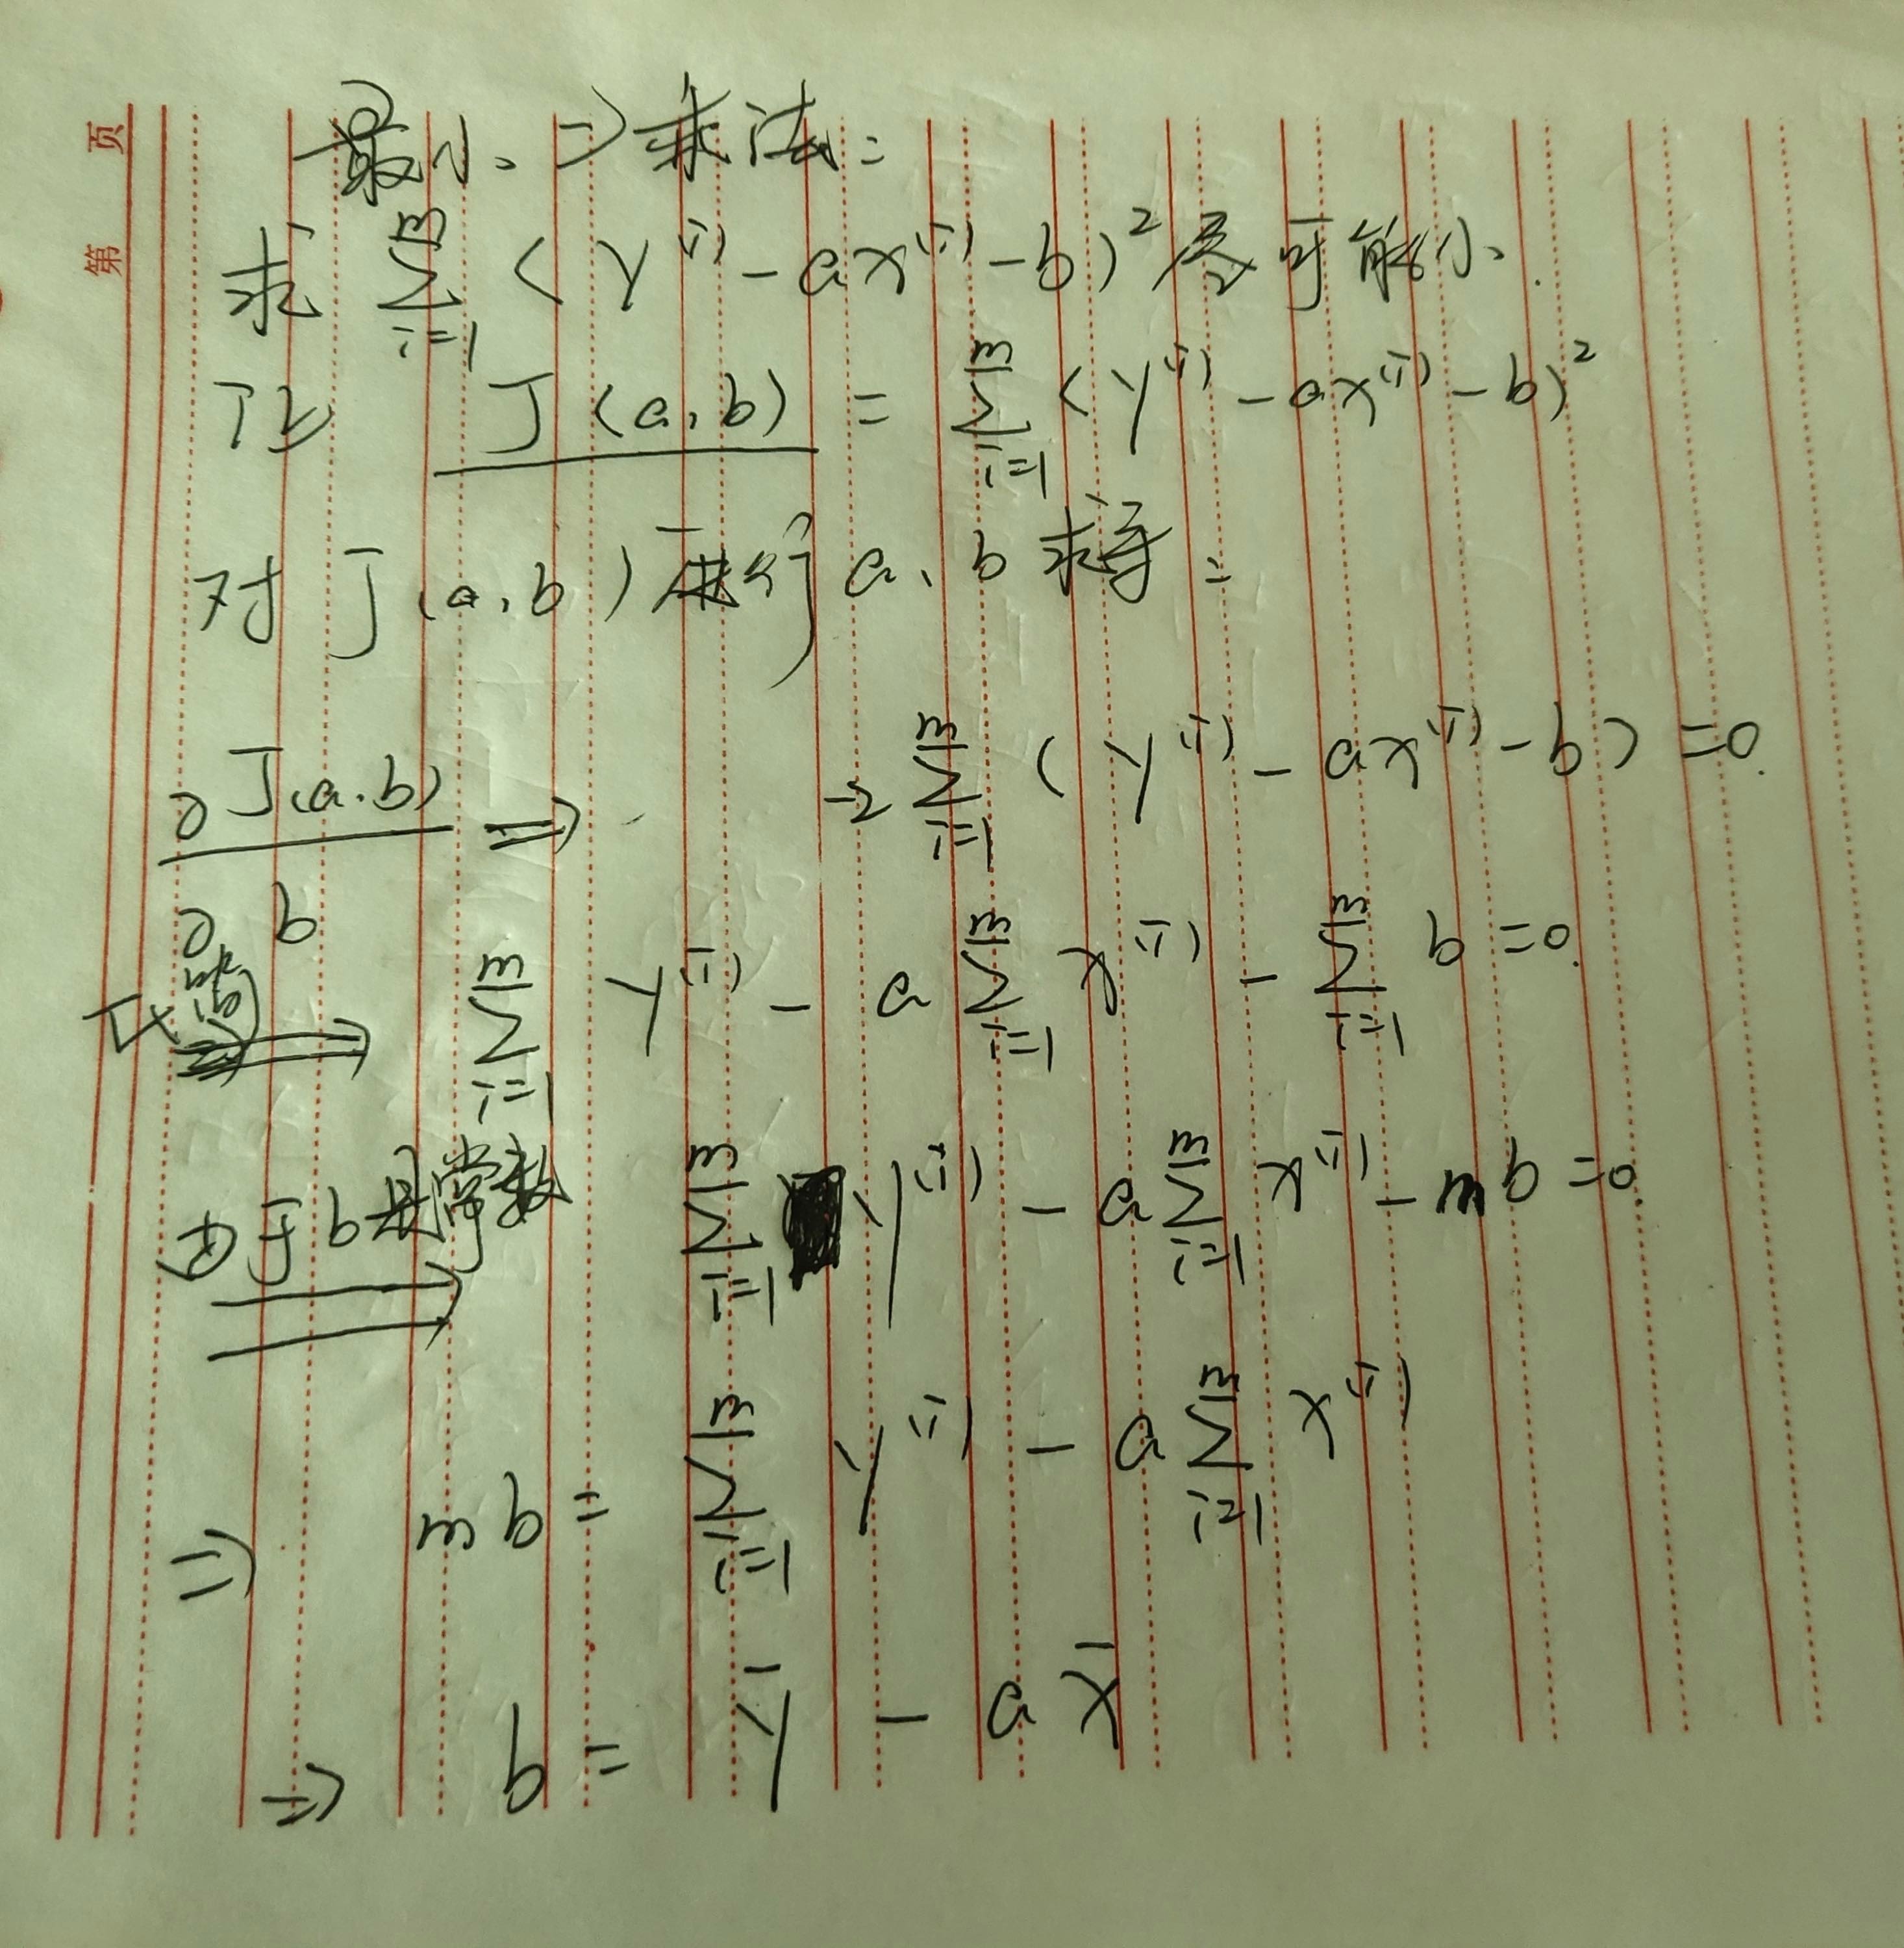 第 页
最小二乘法:
求 ∑_{i=1}^{m} (y^{(i)} - ax^{(i)} - b)^2 尽可能小.
J(a,b) = ∑_{i=1}^{m} (y^{(i)} - ax^{(i)} - b)^2
对 J(a,b) 进行 a、b 求导:
∂J(a,b)/∂b ⇒ -2 ∑_{i=1}^{m} (y^{(i)} - ax^{(i)} - b) = 0.
⇒ ∑_{i=1}^{m} y^{(i)} - a ∑_{i=1}^{m} x^{(i)} - ∑_{i=1}^{m} b = 0.
由于b是常数 ⇒ ∑_{i=1}^{m} y^{(i)} - a ∑_{i=1}^{m} x^{(i)} - mb = 0.
⇒ mb = ∑_{i=1}^{m} y^{(i)} - a ∑_{i=1}^{m} x^{(i)}
⇒ b = ȳ - a x̄